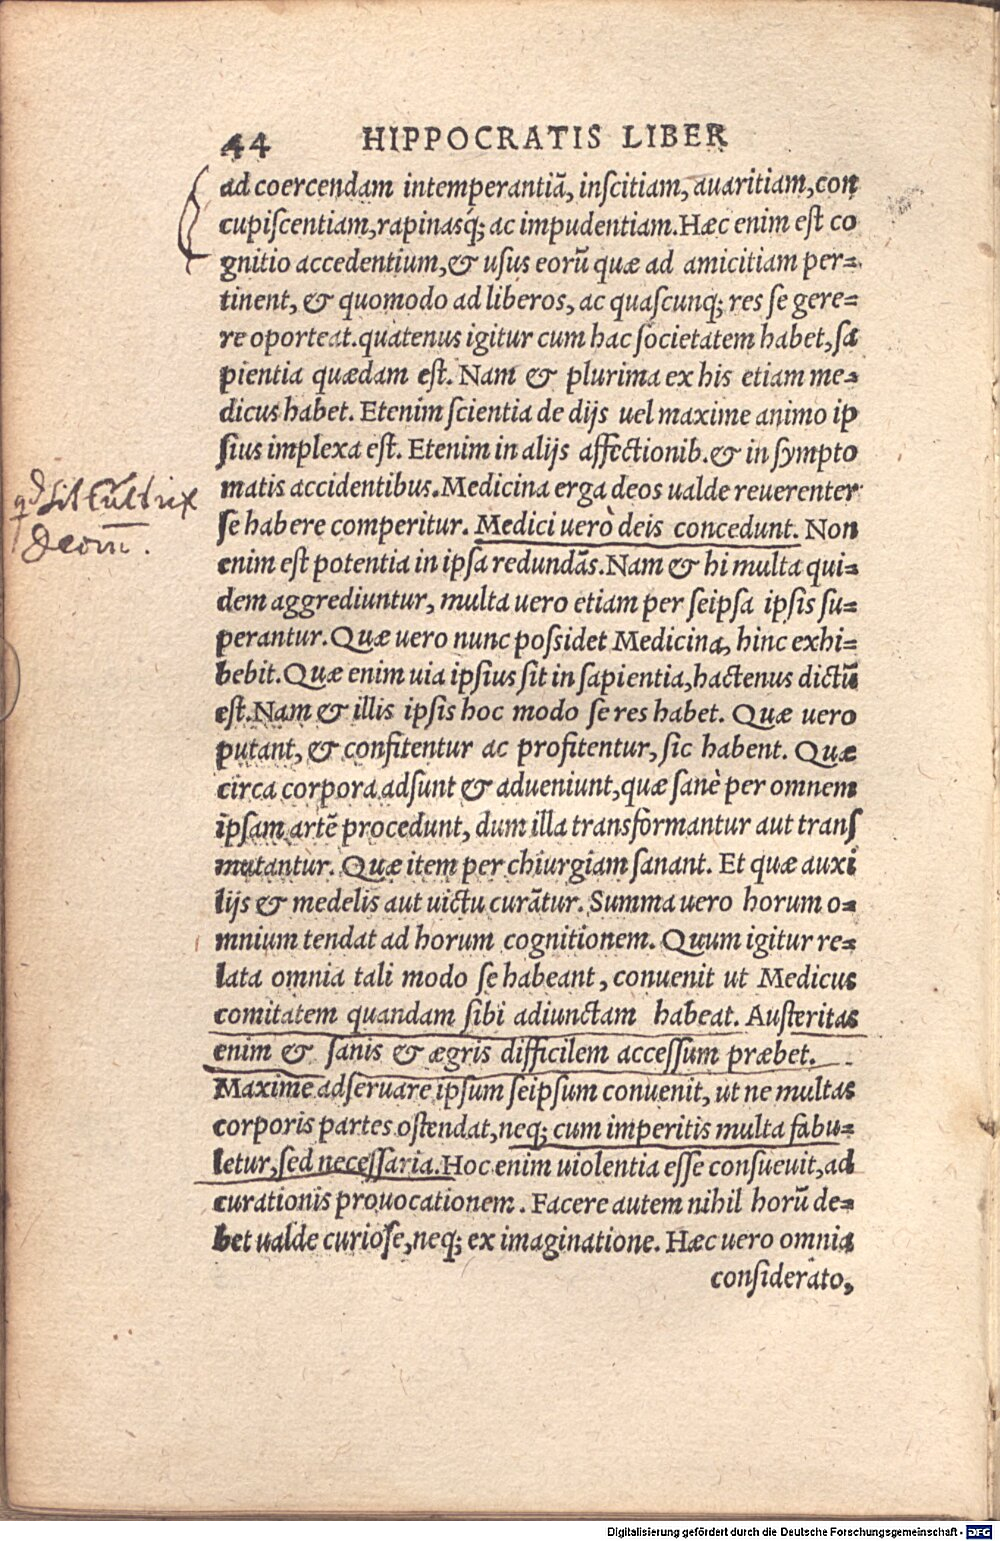 44 HIPPOCRATIS LIBER
ad coercendam intemperantiã, inſcitiam, auaritiam, con
cupiſcentiam, rapinasq; ac impudentiam. Hæc enim eſt co
gnitio accedentium, & uſus eorũ quæ ad amicitiam per-
tinent, & quomodo ad liberos, ac quaſcunq; res ſe gere-
re oporteat. quatenus igitur cum hac ſocietatem habet, ſa
pientia quædam eſt. Nam & plurima ex his etiam me-
dicus habet. Etenim ſcientia de dijs uel maxime animo ip
ſius implexa eſt. Etenim in alijs affectionib. & in ſympto
matis accidentibus. Medicina erga deos ualde reuerenter
ſe habere comperitur. Medici uerò deis concedunt. Non
enim eſt potentia in ipſa redundãs. Nam & hi multa qui-
dem aggrediuntur, multa uero etiam per ſeipſa ipſis ſu-
perantur. Quæ uero nunc poſsidet Medicina, hinc exhi-
bebit. Quæ enim uia ipſius ſit in ſapientia, hactenus dictũ
eſt. Nam & illis ipſis hoc modo ſe res habet. Quæ uero
putant, & confitentur ac profitentur, ſic habent. Quæ
circa corpora adſunt & adueniunt, quæ ſanè per omnem
ipſam artẽ procedunt, dum illa transformantur aut tranſ
mutantur. Quæ item per chiurgiam ſanant. Et quæ auxi
lijs & medelis aut uictu curãtur. Summa uero horum o-
mnium tendat ad horum cognitionem. Quum igitur re-
lata omnia tali modo ſe habeant, conuenit ut Medicus
comitatem quandam ſibi adiunctam habeat. Auſteritas
enim & ſanis & ægris difficilem acceſſum præbet.
Maxime adſeruare ipſum ſeipſum conuenit, ut ne multas
corporis partes oſtendat, neq; cum imperitis multa fabu-
letur, ſed neceſſaria. Hoc enim uiolentia eſſe conſueuit, ad
curationis prouocationem. Facere autem nihil horũ de-
bet ualde curioſe, neq; ex imaginatione. Hæc uero omnia
conſiderato,
sit Cultrix
Deorũ.
Digitalisierung gefördert durch die Deutsche Forschungsgemeinschaft - DFG